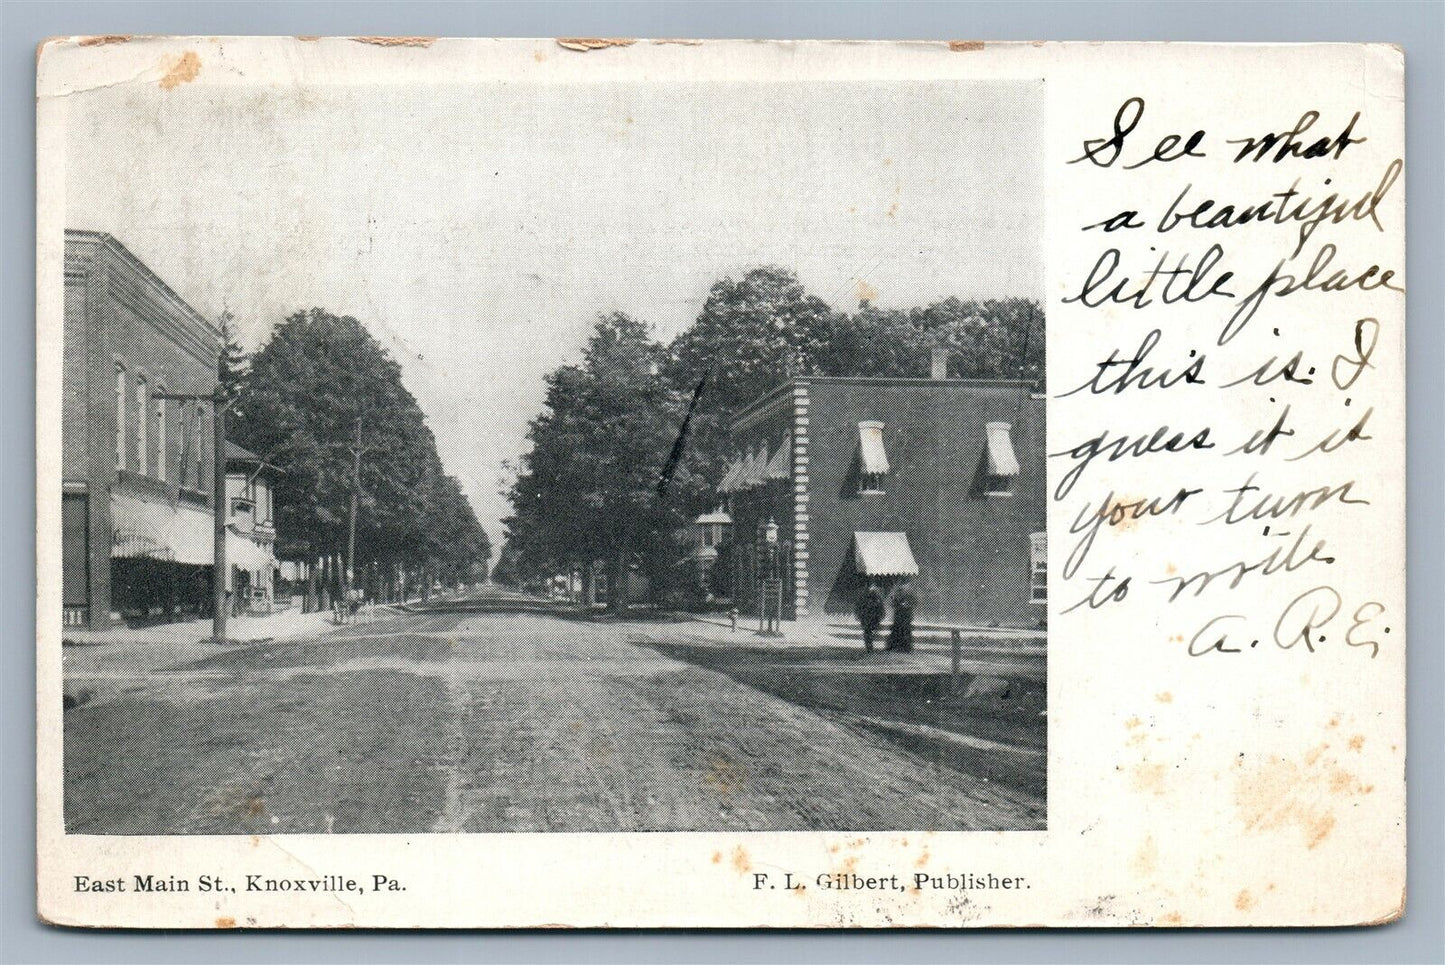 See what
a beautiful
little place
this is. I
guess it is
your turn
to write
A. R. E.
East Main St., Knoxville, Pa.
F. L. Gilbert, Publisher.